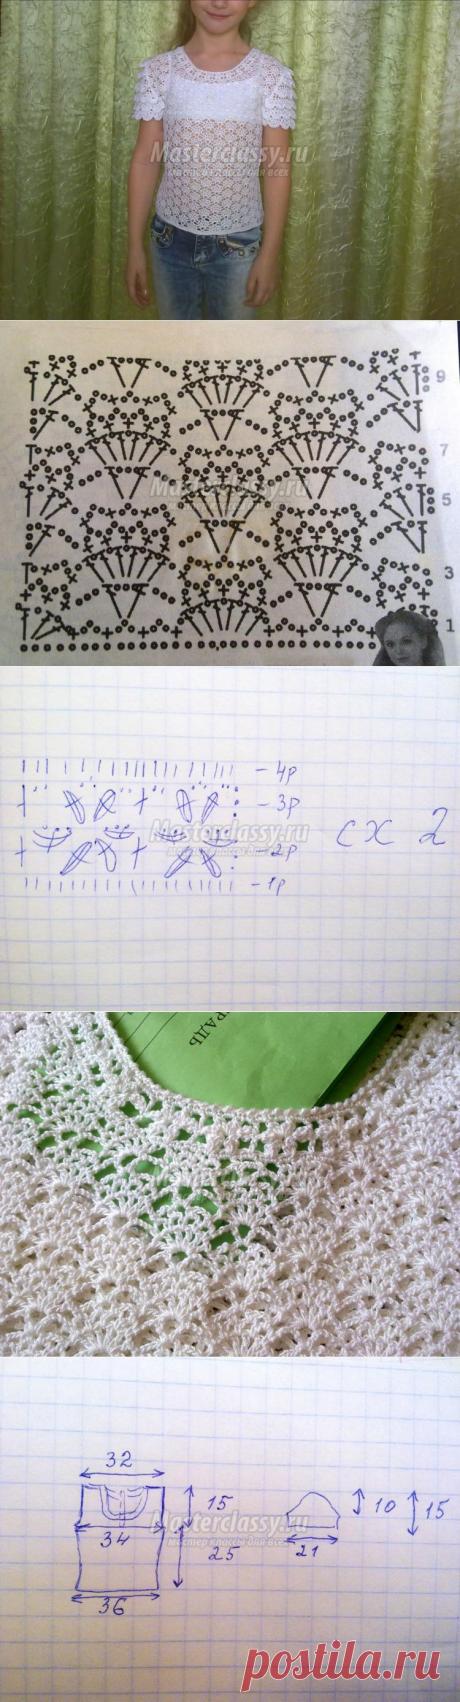 Masterclassy.ru
мастер классы для всех
9
7
Masterclassy.ru
5
3
1
-4р
-3р
Masterclassy.ru
-2р
сх 2
-1р
ТРАДЬ
Masterclassy.ru
32
15
10
15
Masterclassy.ru
Мастер классы для всех
34
21
25
36
postila.ru